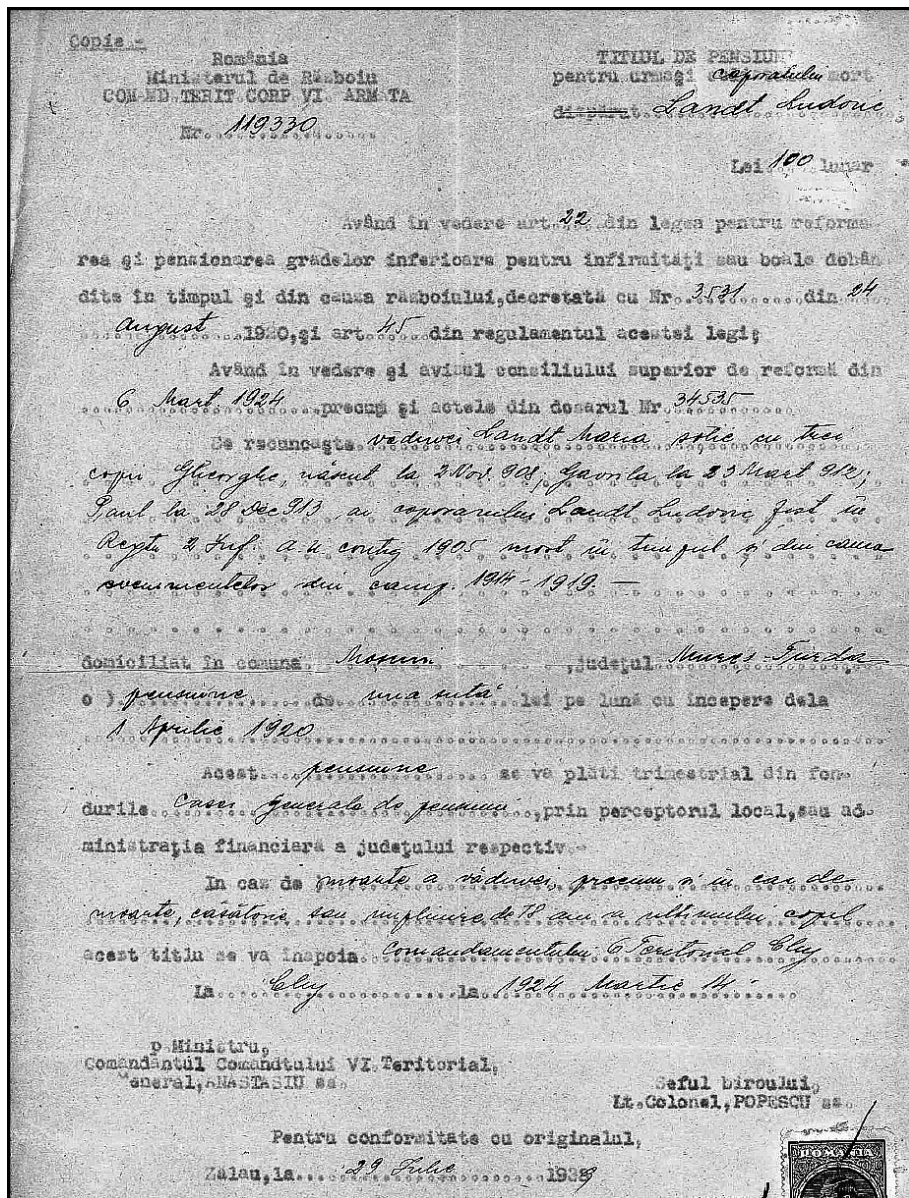 Copie -
România
Ministerul de Războiu
COMAND TERIT CORP VI ARMATA
Nr. 119330
TITLUL DE PENSIUNE
pentru urmași caporalului mort
dispărut Landt Ludovic
Lei 100 lunar
Având în vedere art. 22 din legea pentru reforma
rea și pensionarea gradelor inferioare pentru infirmități sau boale dobân
dite în timpul și din cauza războiului, decretată cu Nr. 3531 din 24
August 1920, și art. 45 din regulamentul acestei legi;
Având în vedere și avizul consiliului superior de reformă din
6 Mart 1924 precum și actele din dosarul Nr. 34535
Se recunoaște văduvei Landt Maria soție cu trei
copii Gheorghe, născut la 2 Nov. 908, Gavrila la 23 Mart 912;
Paul la 28 Dec 913 ai caporalului Landt Ludovic fost în
Regtu 2 Inf. a. u. contig 1905 mort în timpul și din cauza
evenimentelor din camp. 1914-1919 —
domiciliat în comuna , județul Mureș-Turda
o ) pensiune de una sută lei pe lună cu începere dela
1 Aprilie 1920
Acest pensiune se va plăti trimestrial din fon-
durile Casei Generale de pensiuni, prin perceptorul local, sau ad-
ministrația financiară a județului respectiv.-
In caz de moarte a văduvei, precum și în caz de
moarte, căsătorie sau împlinire de 18 ani a ultimului copil
acest titlu se va înapoia Comandamentului 6 Teritorial Cluj
La Cluj la 1924 Martie 14
p Ministru,
Comandantul Comandtului VI Teritorial,
General, ANASTASIU ss.
Seful biroului,
Lt. Colonel, POPESCU ss.
Pentru conformitate cu originalul,
Zălau, la 29 Iulie 1939
ROMANIA